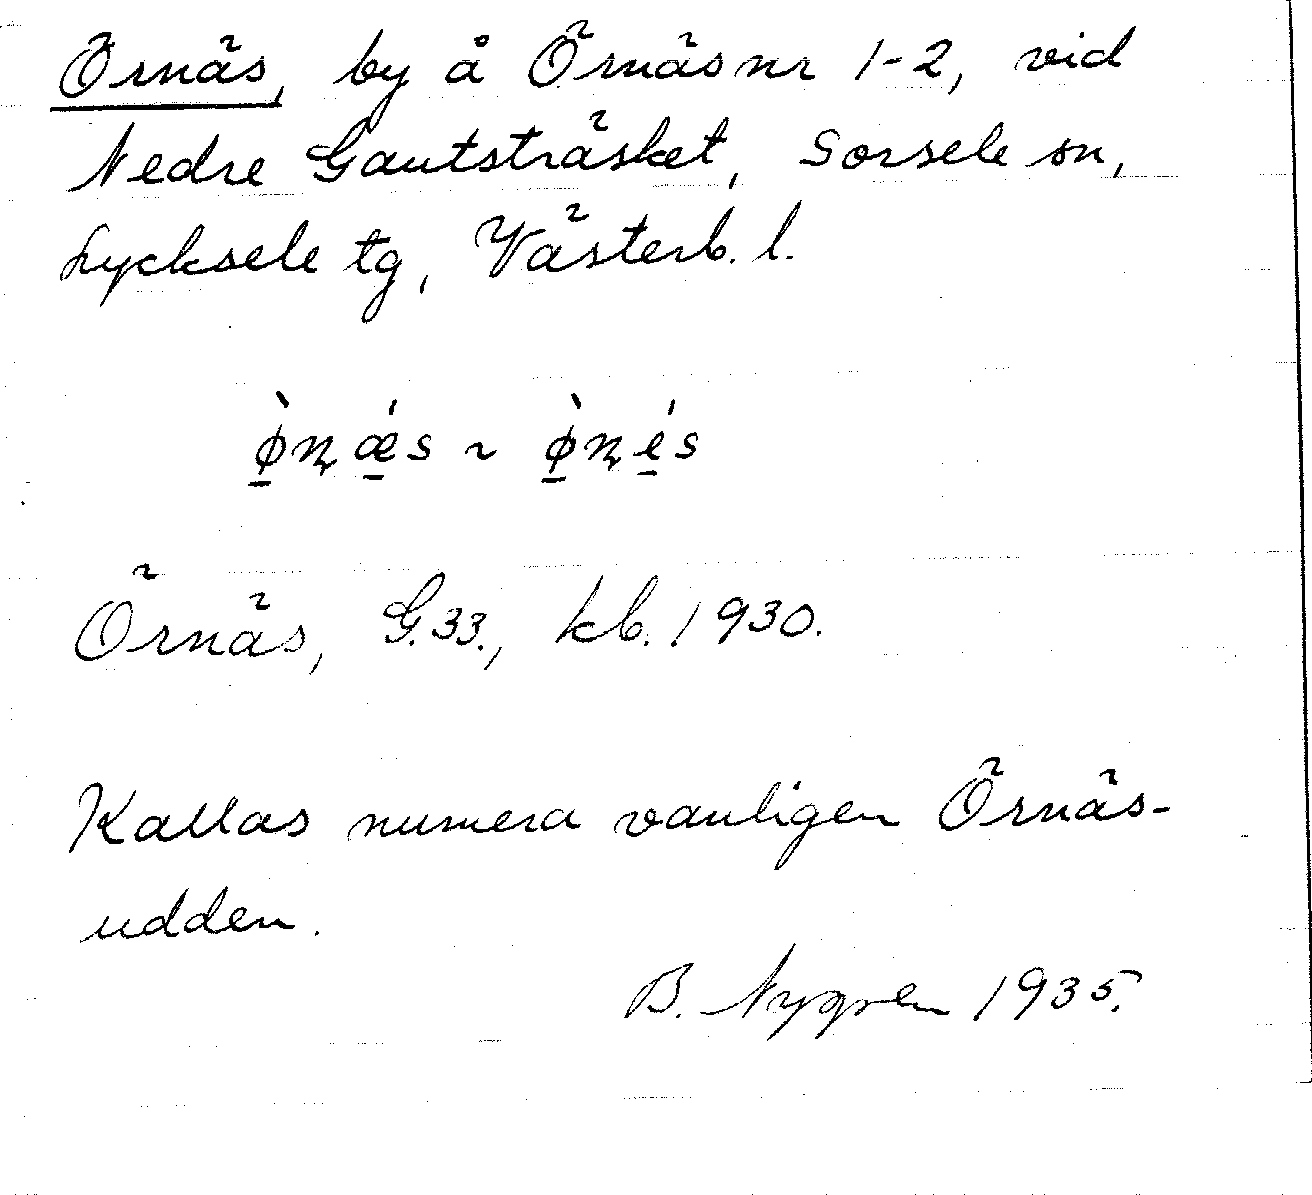 Örnäs, by å Örnäs nr 1-2, vid
Nedre Gautsträsket, Sorsele sn,
Lycksele tg, Västerb. l.
ø̱̀ɳǽ̱s ~ ø̱̀ɳé̱s
Örnäs, G.33., kb. 1930.
Kallas numera vanligen Örnäs-
udden.
B. Nygren 1935.